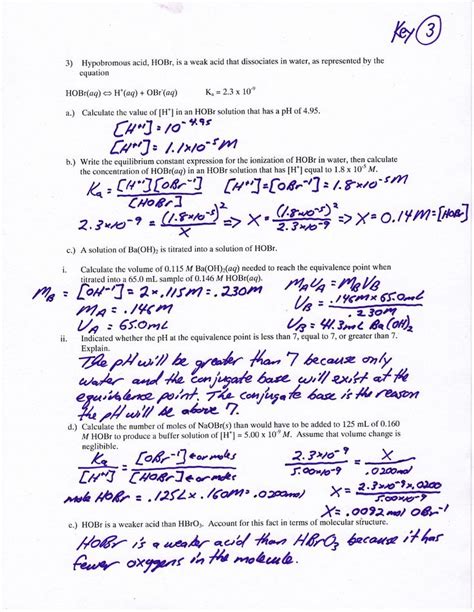 Key 3
3) Hypobromous acid, HOBr, is a weak acid that dissociates in water, as represented by the
equation
HOBr(aq) ⇔ H⁺(aq) + OBr⁻(aq) Kₐ = 2.3 x 10⁻⁹
a.) Calculate the value of [H⁺] in an HOBr solution that has a pH of 4.95.
[H⁺¹] = 10⁻⁴·⁹⁵
[H⁺¹] = 1.1x10⁻⁵ M
b.) Write the equilibrium constant expression for the ionization of HOBr in water, then calculate
the concentration of HOBr(aq) in an HOBr solution that has [H⁺] equal to 1.8 x 10⁻⁵ M.
Ka = [H⁺¹][OBr⁻¹] / [HOBr] [H⁺¹] = [OBr⁻¹] = 1.8x10⁻⁵ M
2.3x10⁻⁹ = (1.8x10⁻⁵)² / X => X = (1.8x10⁻⁵)² / 2.3x10⁻⁹ => X = 0.14M = [HOBr]
c.) A solution of Ba(OH)₂ is titrated into a solution of HOBr.
i. Calculate the volume of 0.115 M Ba(OH)₂(aq) needed to reach the equivalence point when
titrated into a 65.0 mL sample of 0.146 M HOBr(aq).
M_B = [OH⁻¹] = 2 x .115M = .230M M_A V_A = M_B V_B
M_A = .146M V_B = .146M x 65.0mL / .230M
V_A = 65.0mL V_B = 41.3mL Ba(OH)₂
ii. Indicated whether the pH at the equivalence point is less than 7, equal to 7, or greater than 7.
Explain.
The pH will be greater than 7 because only
water and the conjugate base will exist at the
equivalence point. The conjugate base is the reason
the pH will be above 7.
d.) Calculate the number of moles of NaOBr(s) than would have to be added to 125 mL of 0.160
M HOBr to produce a buffer solution of [H⁺] = 5.00 x 10⁻⁹ M. Assume that volume change is
negilible.
Ka / [H⁺¹] = [OBr⁻¹] ← or moles / [HOBr] ← or moles 2.3x10⁻⁹ / 5.00x10⁻⁹ = X / .0200mol
mole HOBr = .125L x .160M = .0200mol X = 2.3x10⁻⁹ x .0200 / 5.00x10⁻⁹
X = .0092mol OBr⁻¹
e.) HOBr is a weaker acid than HBrO₃. Account for this fact in terms of molecular structure.
HOBr is a weaker acid than HBrO₃ because it has
fewer oxygens in the molecule.